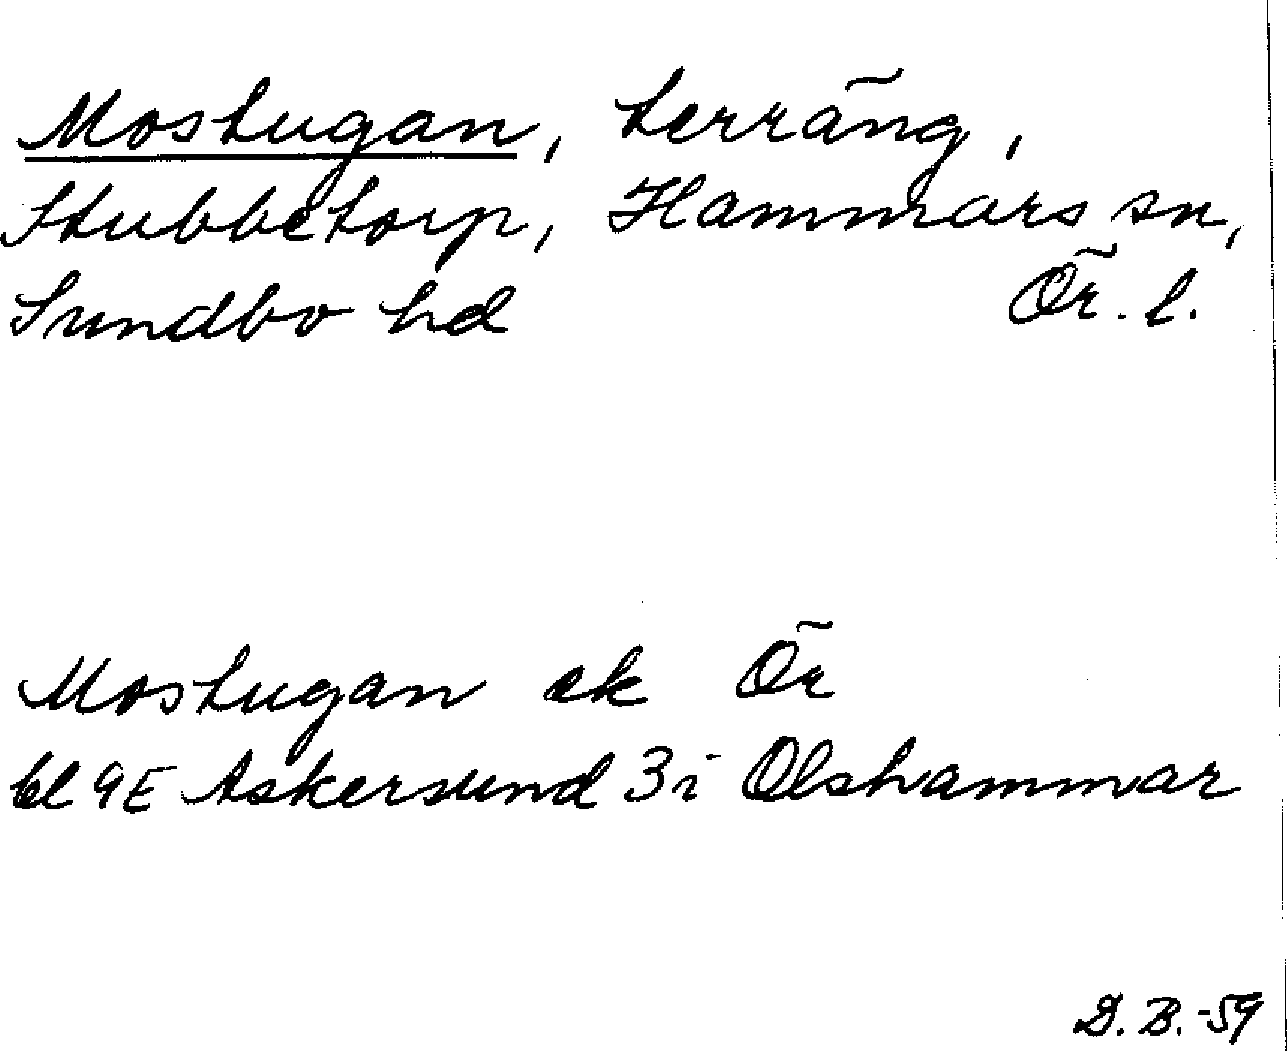 Mostugan, terräng,
Stubbetorp, Hammars sn,
Sundbo hd Ör. l.
Mostugan ek Ör
bl 9E Askersund 3i Olshammar
D. B. -59